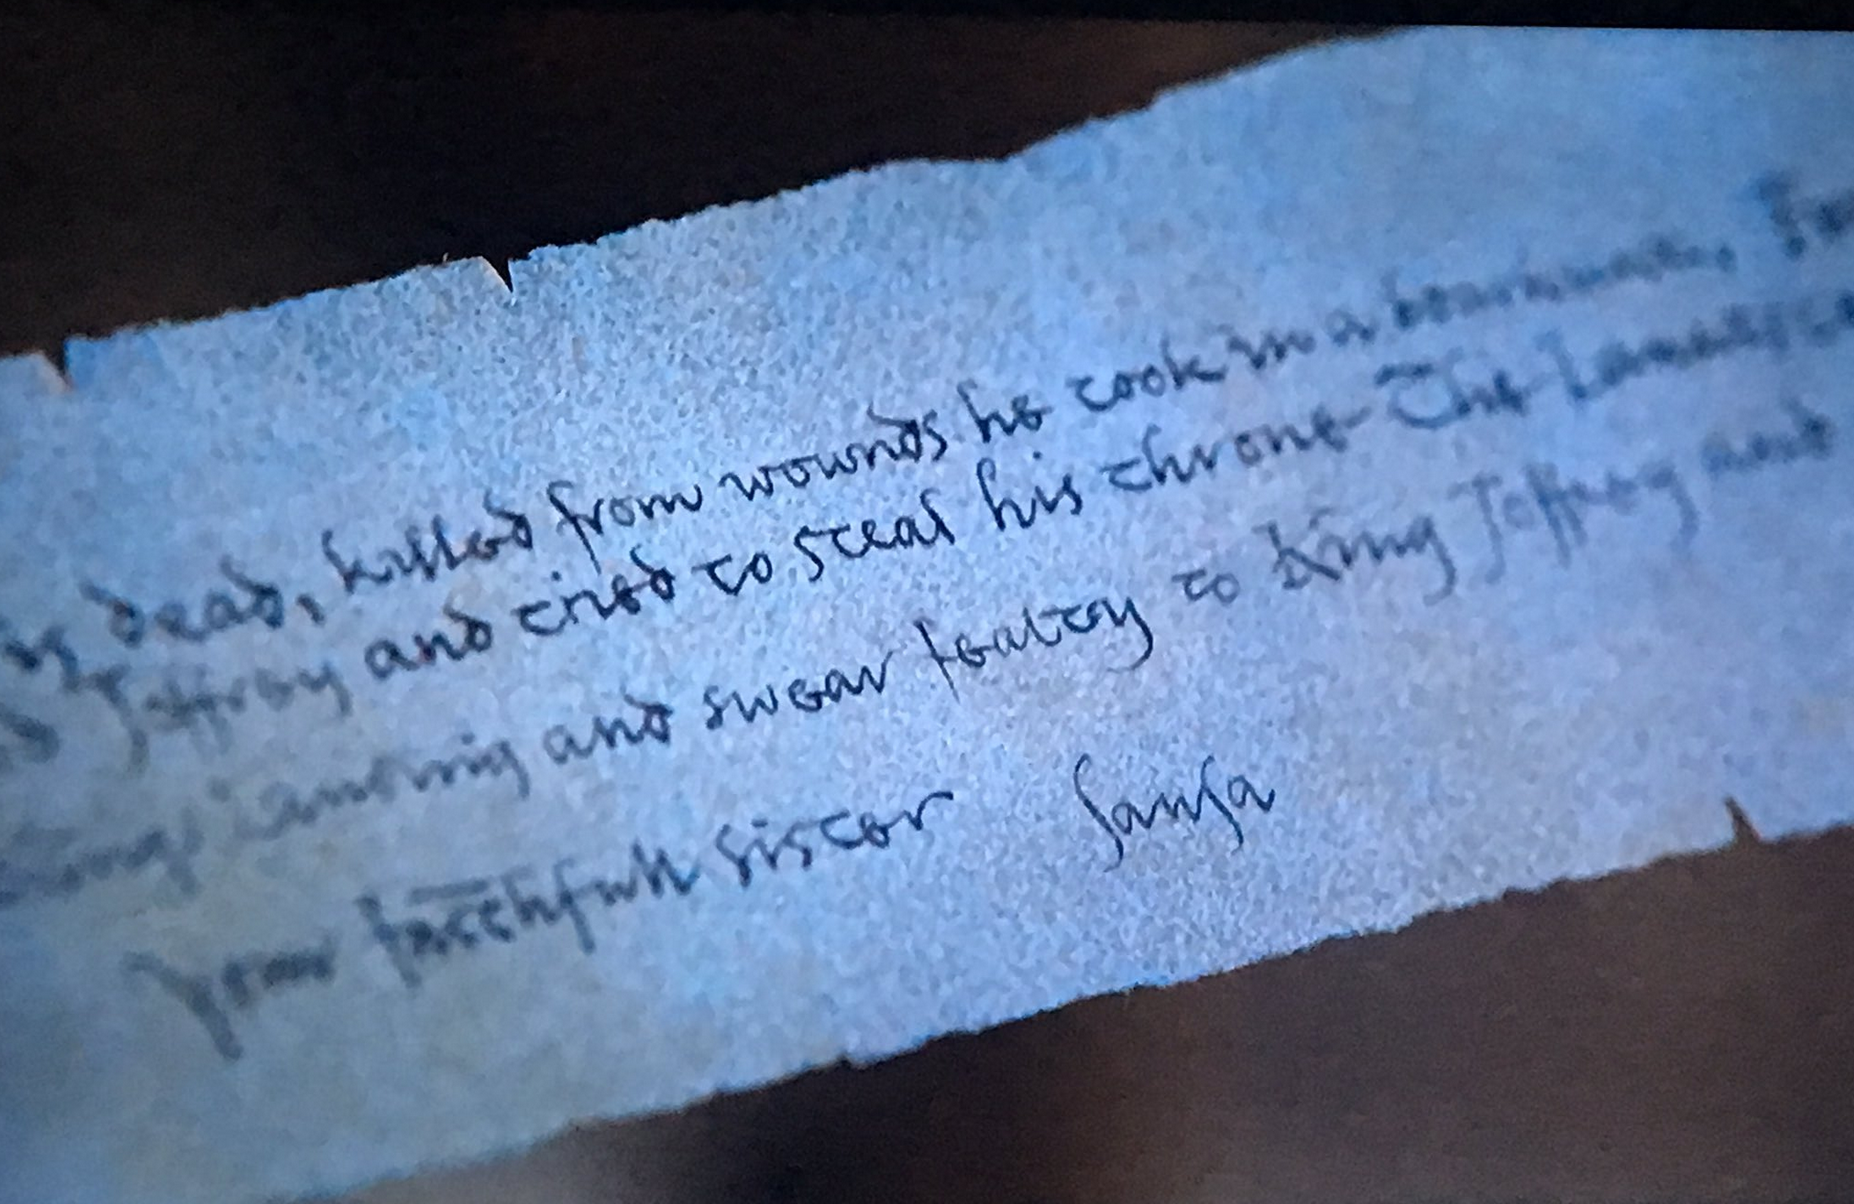 is dead, killed from wounds he took in a boar hunt.
Joffrey and tried to steal his throne The Lannisters
Kings Landing and swear fealty to King Joffrey and
your faithfull sister Sansa